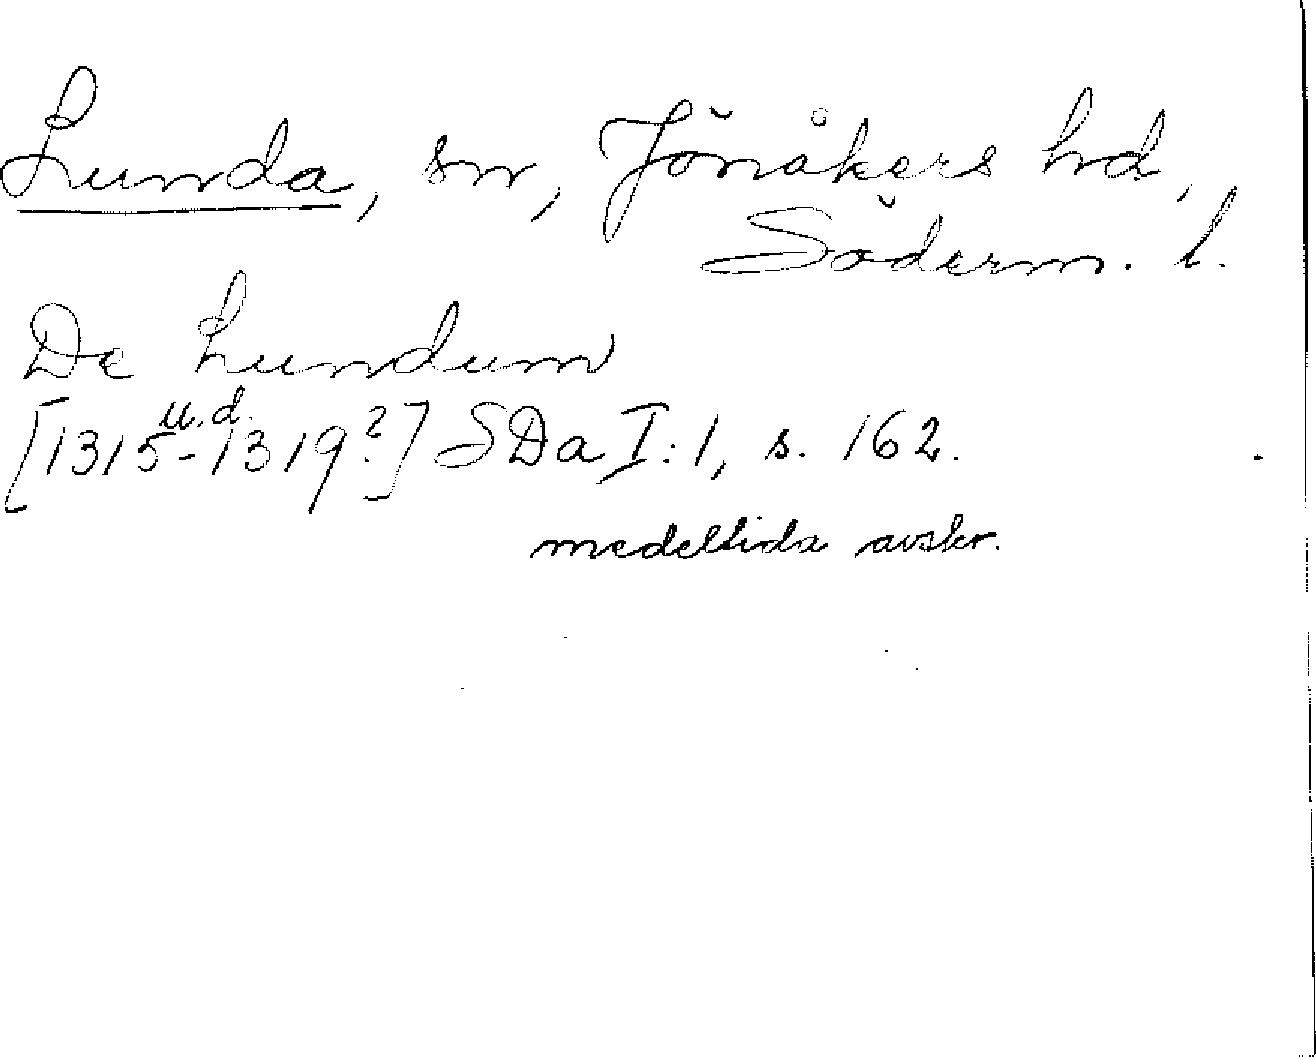 Lunda, sn, Jönåkers hd,
Söderm. l.
De Lundum
u.d.
[1315-1319?] SDa I:1, s. 162.
medeltida avskr.